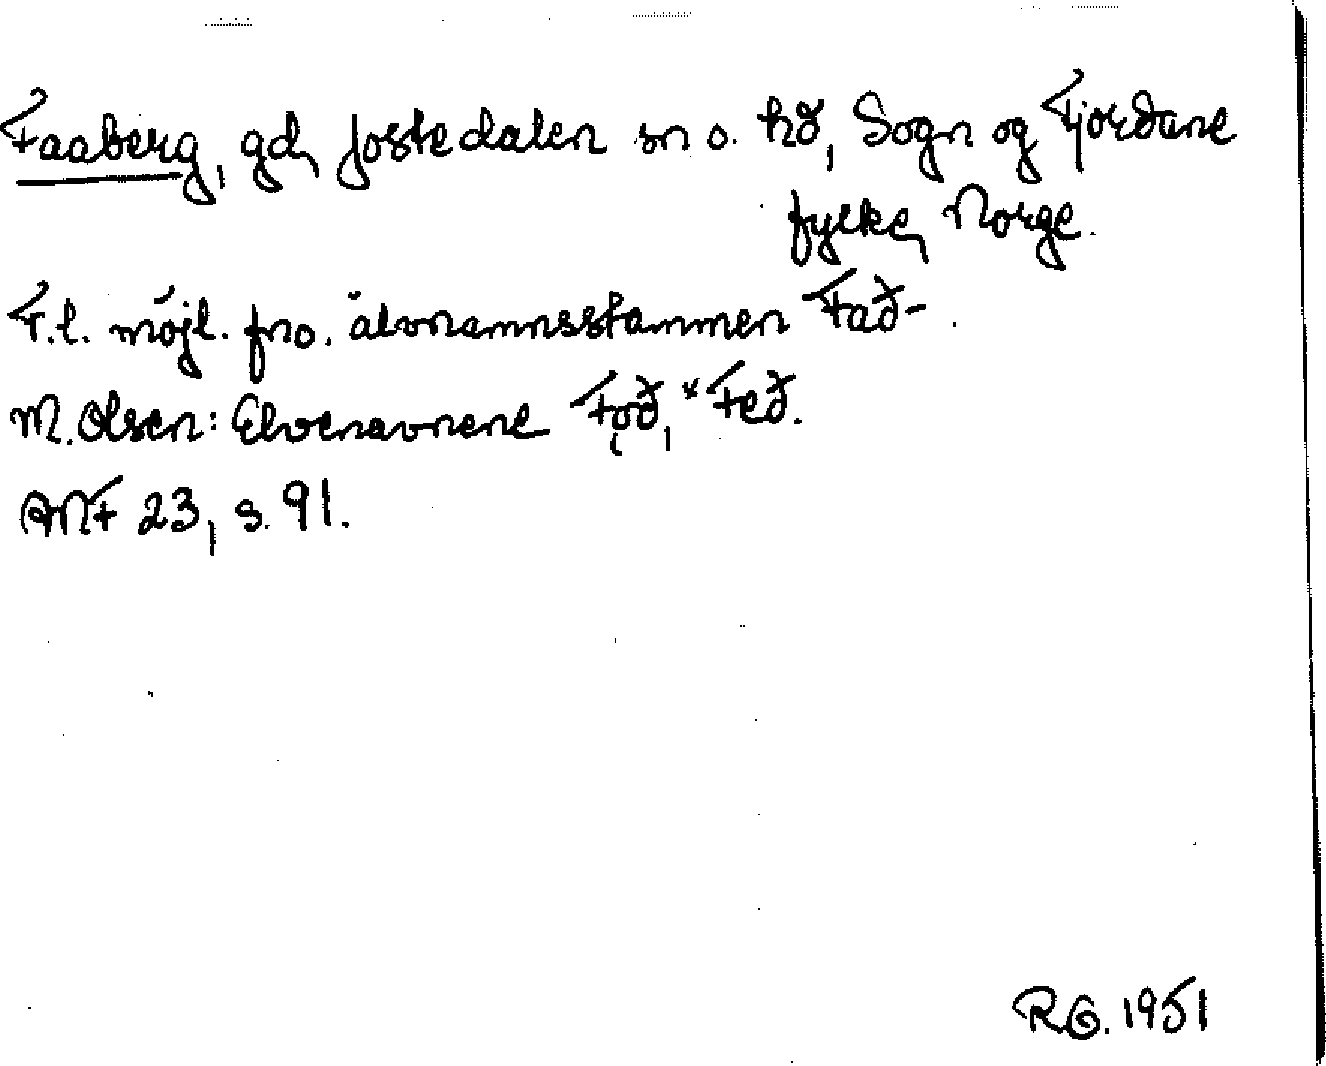 Faaberg, gd, Jostedalen sn o. hd, Sogn og Fjordane
fylke, Norge.
F.l. möjl. fno. älvnamnsstammen Fað-.
M. Olsen: Elvenavnene Fǫð, *Feð.
ANF 23, s. 91.
RG. 1951